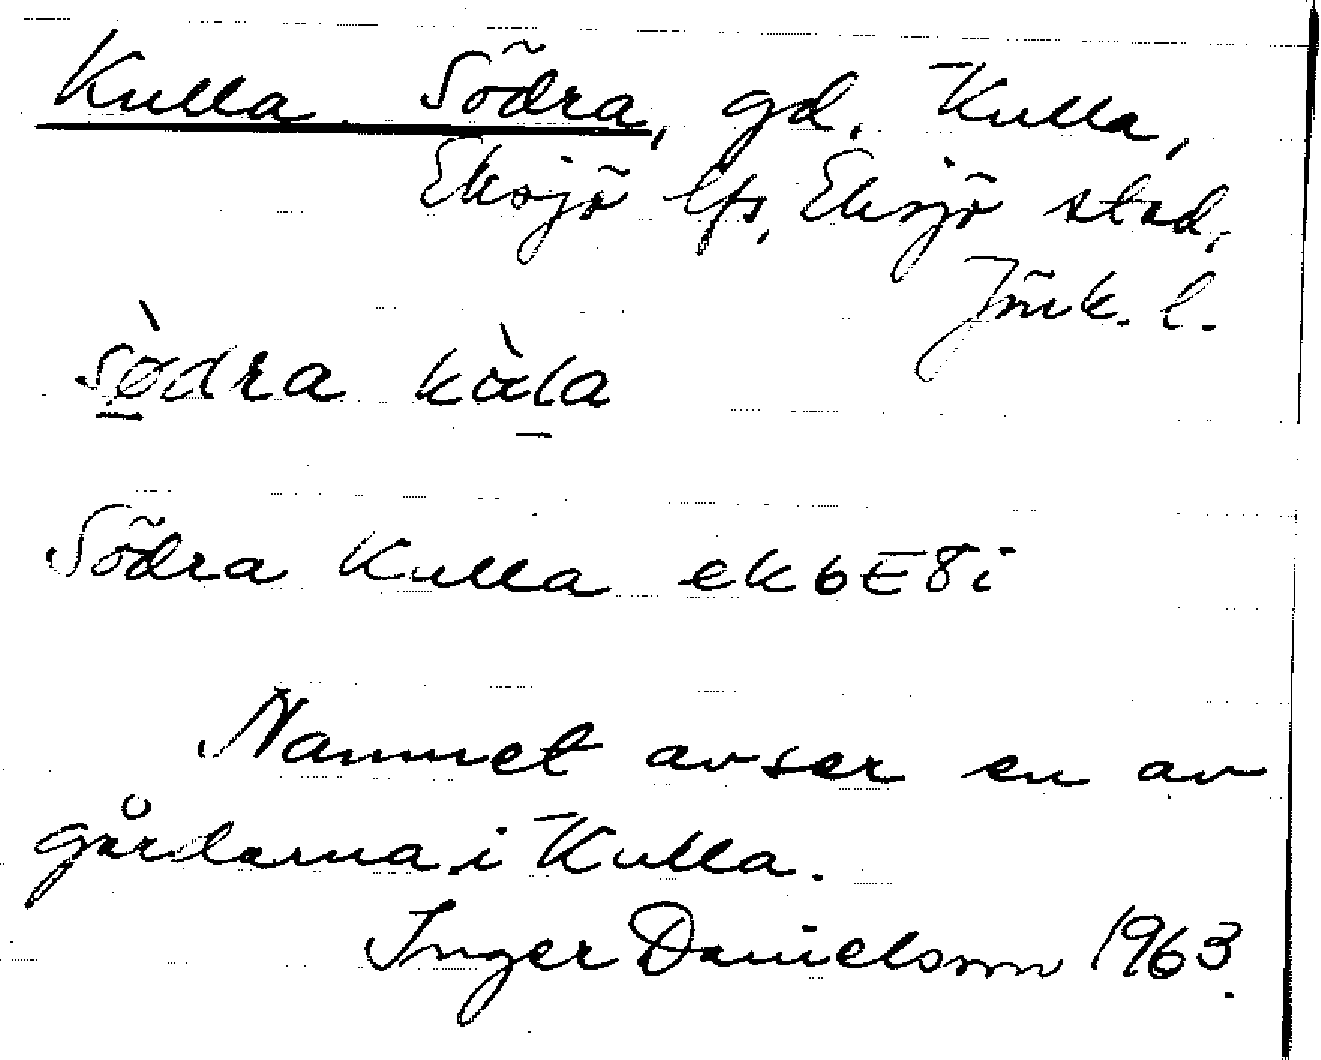 Kulla Södra, gd. Kulla,
Eksjö lfs, Eksjö stad,
Jönk. l.
sø̀dra kàla
Södra Kulla ek 6E8i
Namnet avser en av
gårdarna i Kulla.
Inger Danielsson 1963.